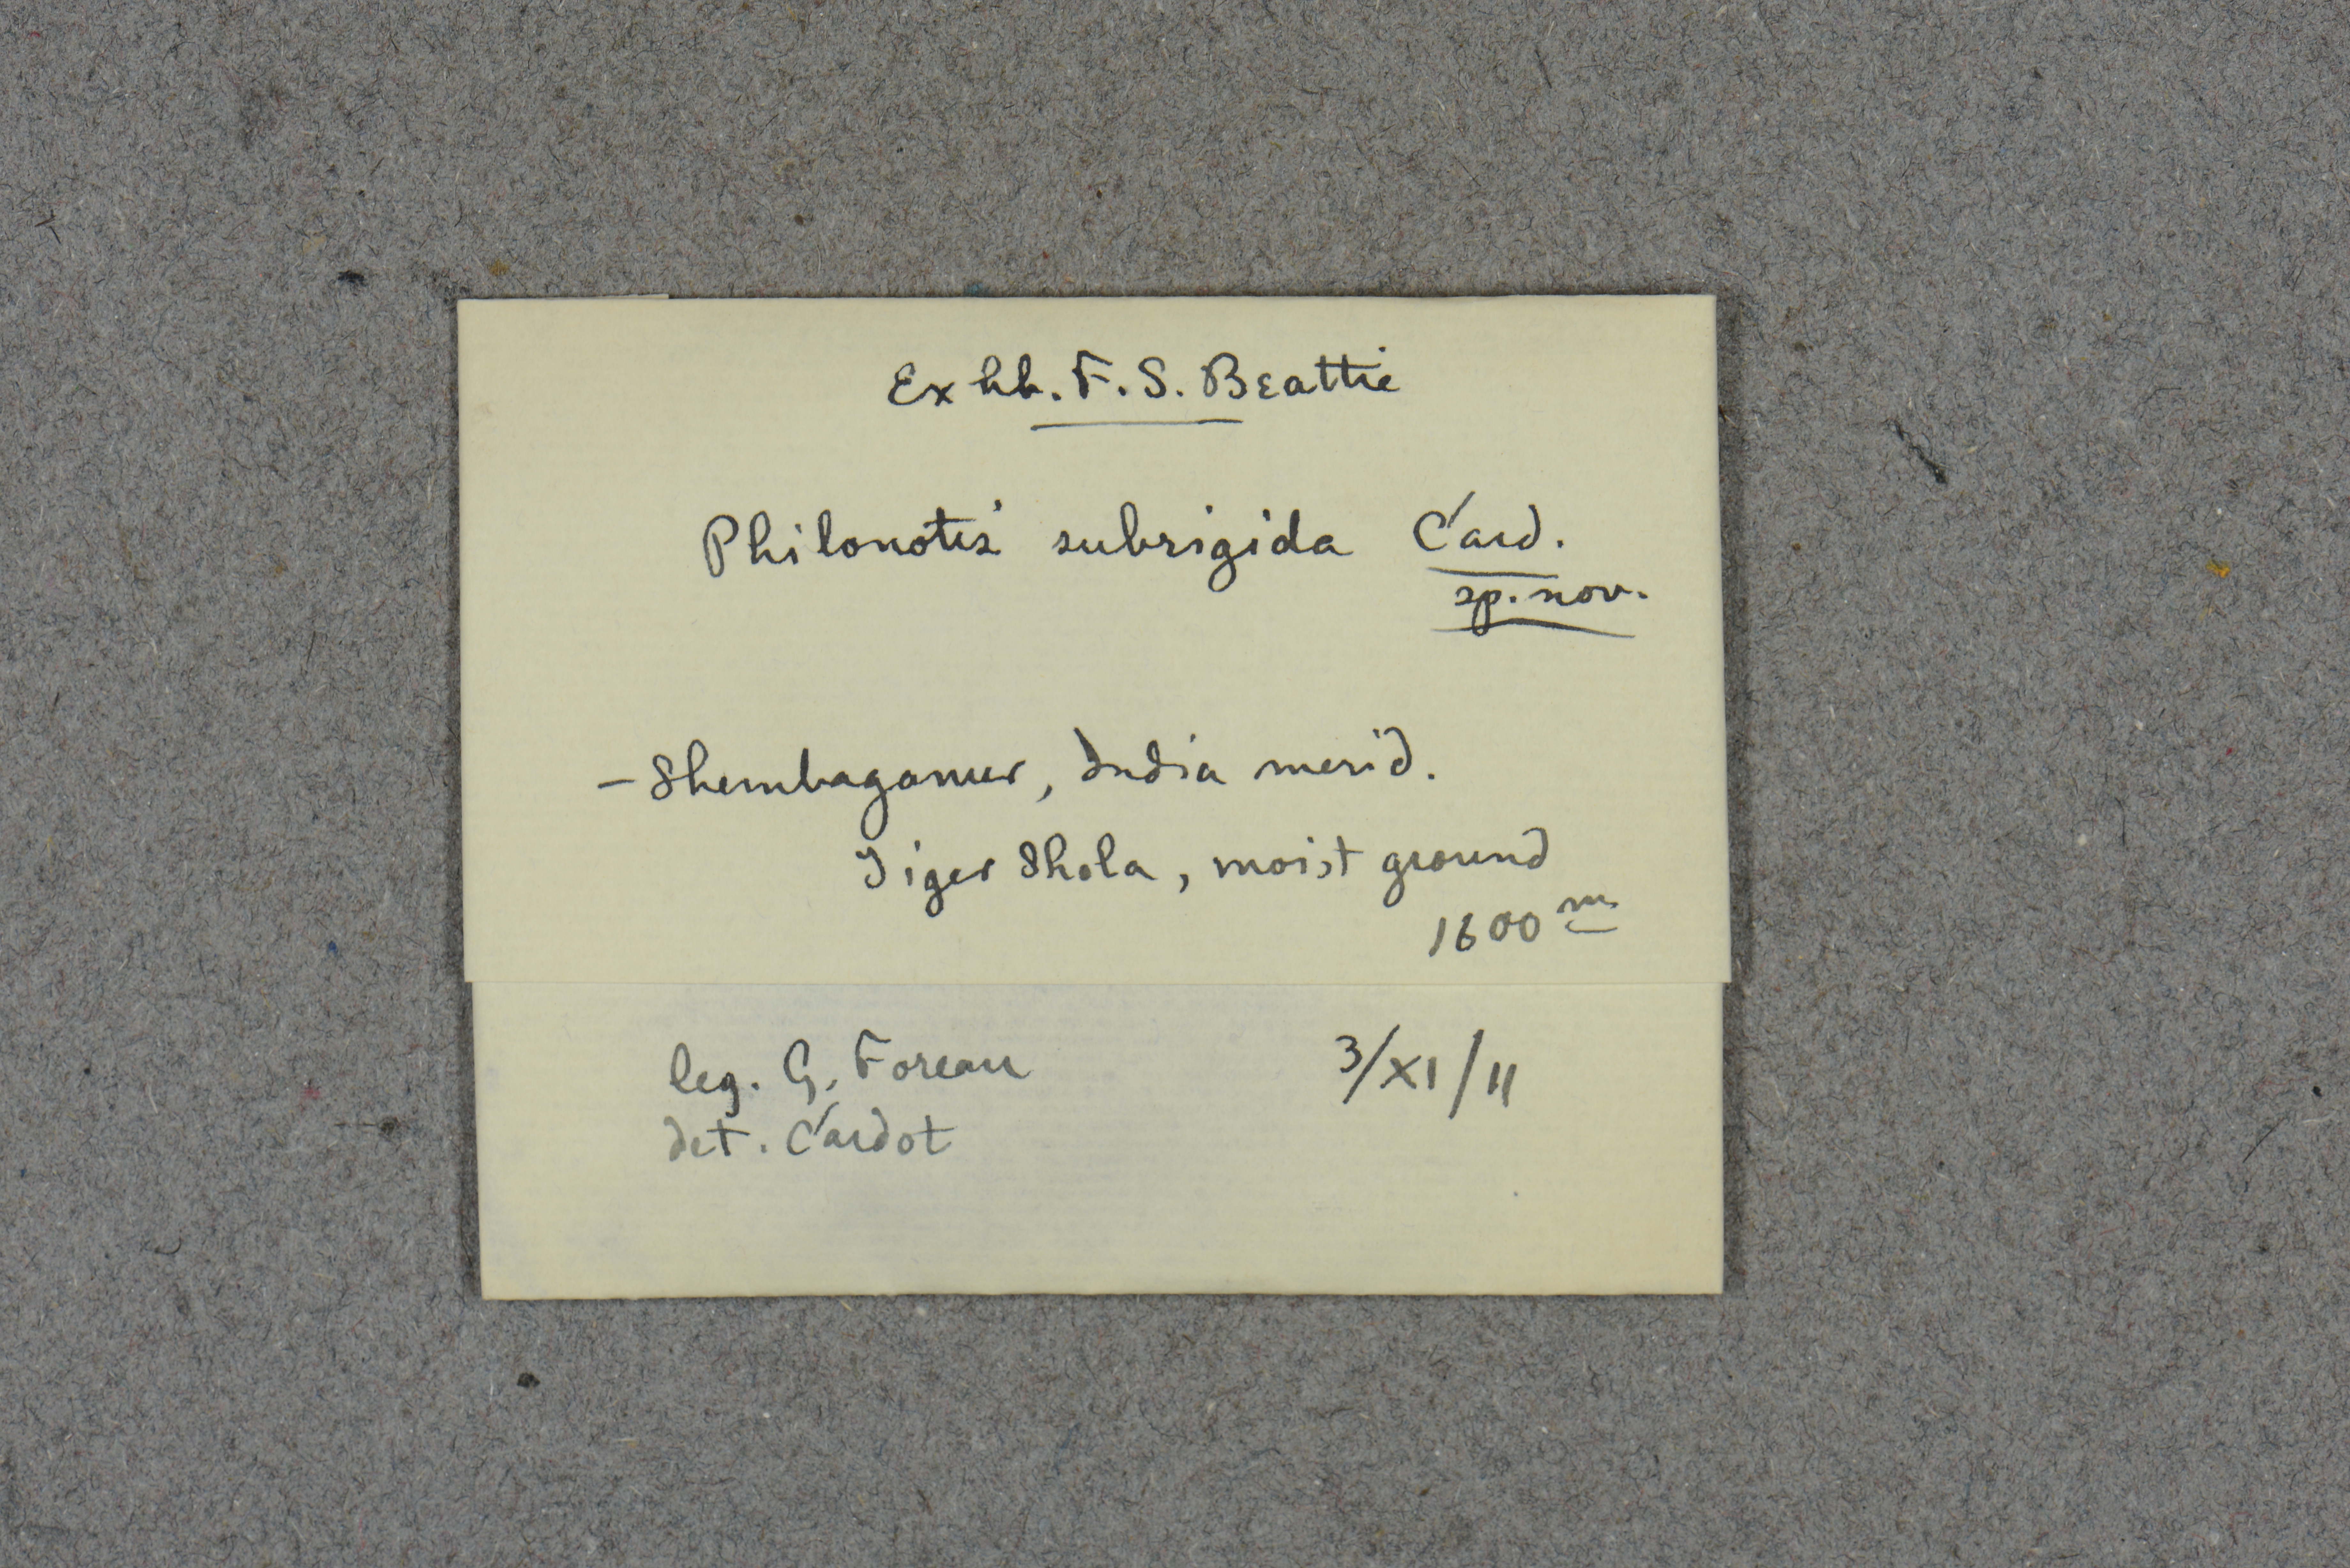 Ex hb. F. S. Beattie
Philonotis subrigida Card.
sp. nov.
- Shembaganur, India merid.
Tiger Shola, moist ground
1600 m
leg. G. Foreau 3/XI/11
det. Cardot